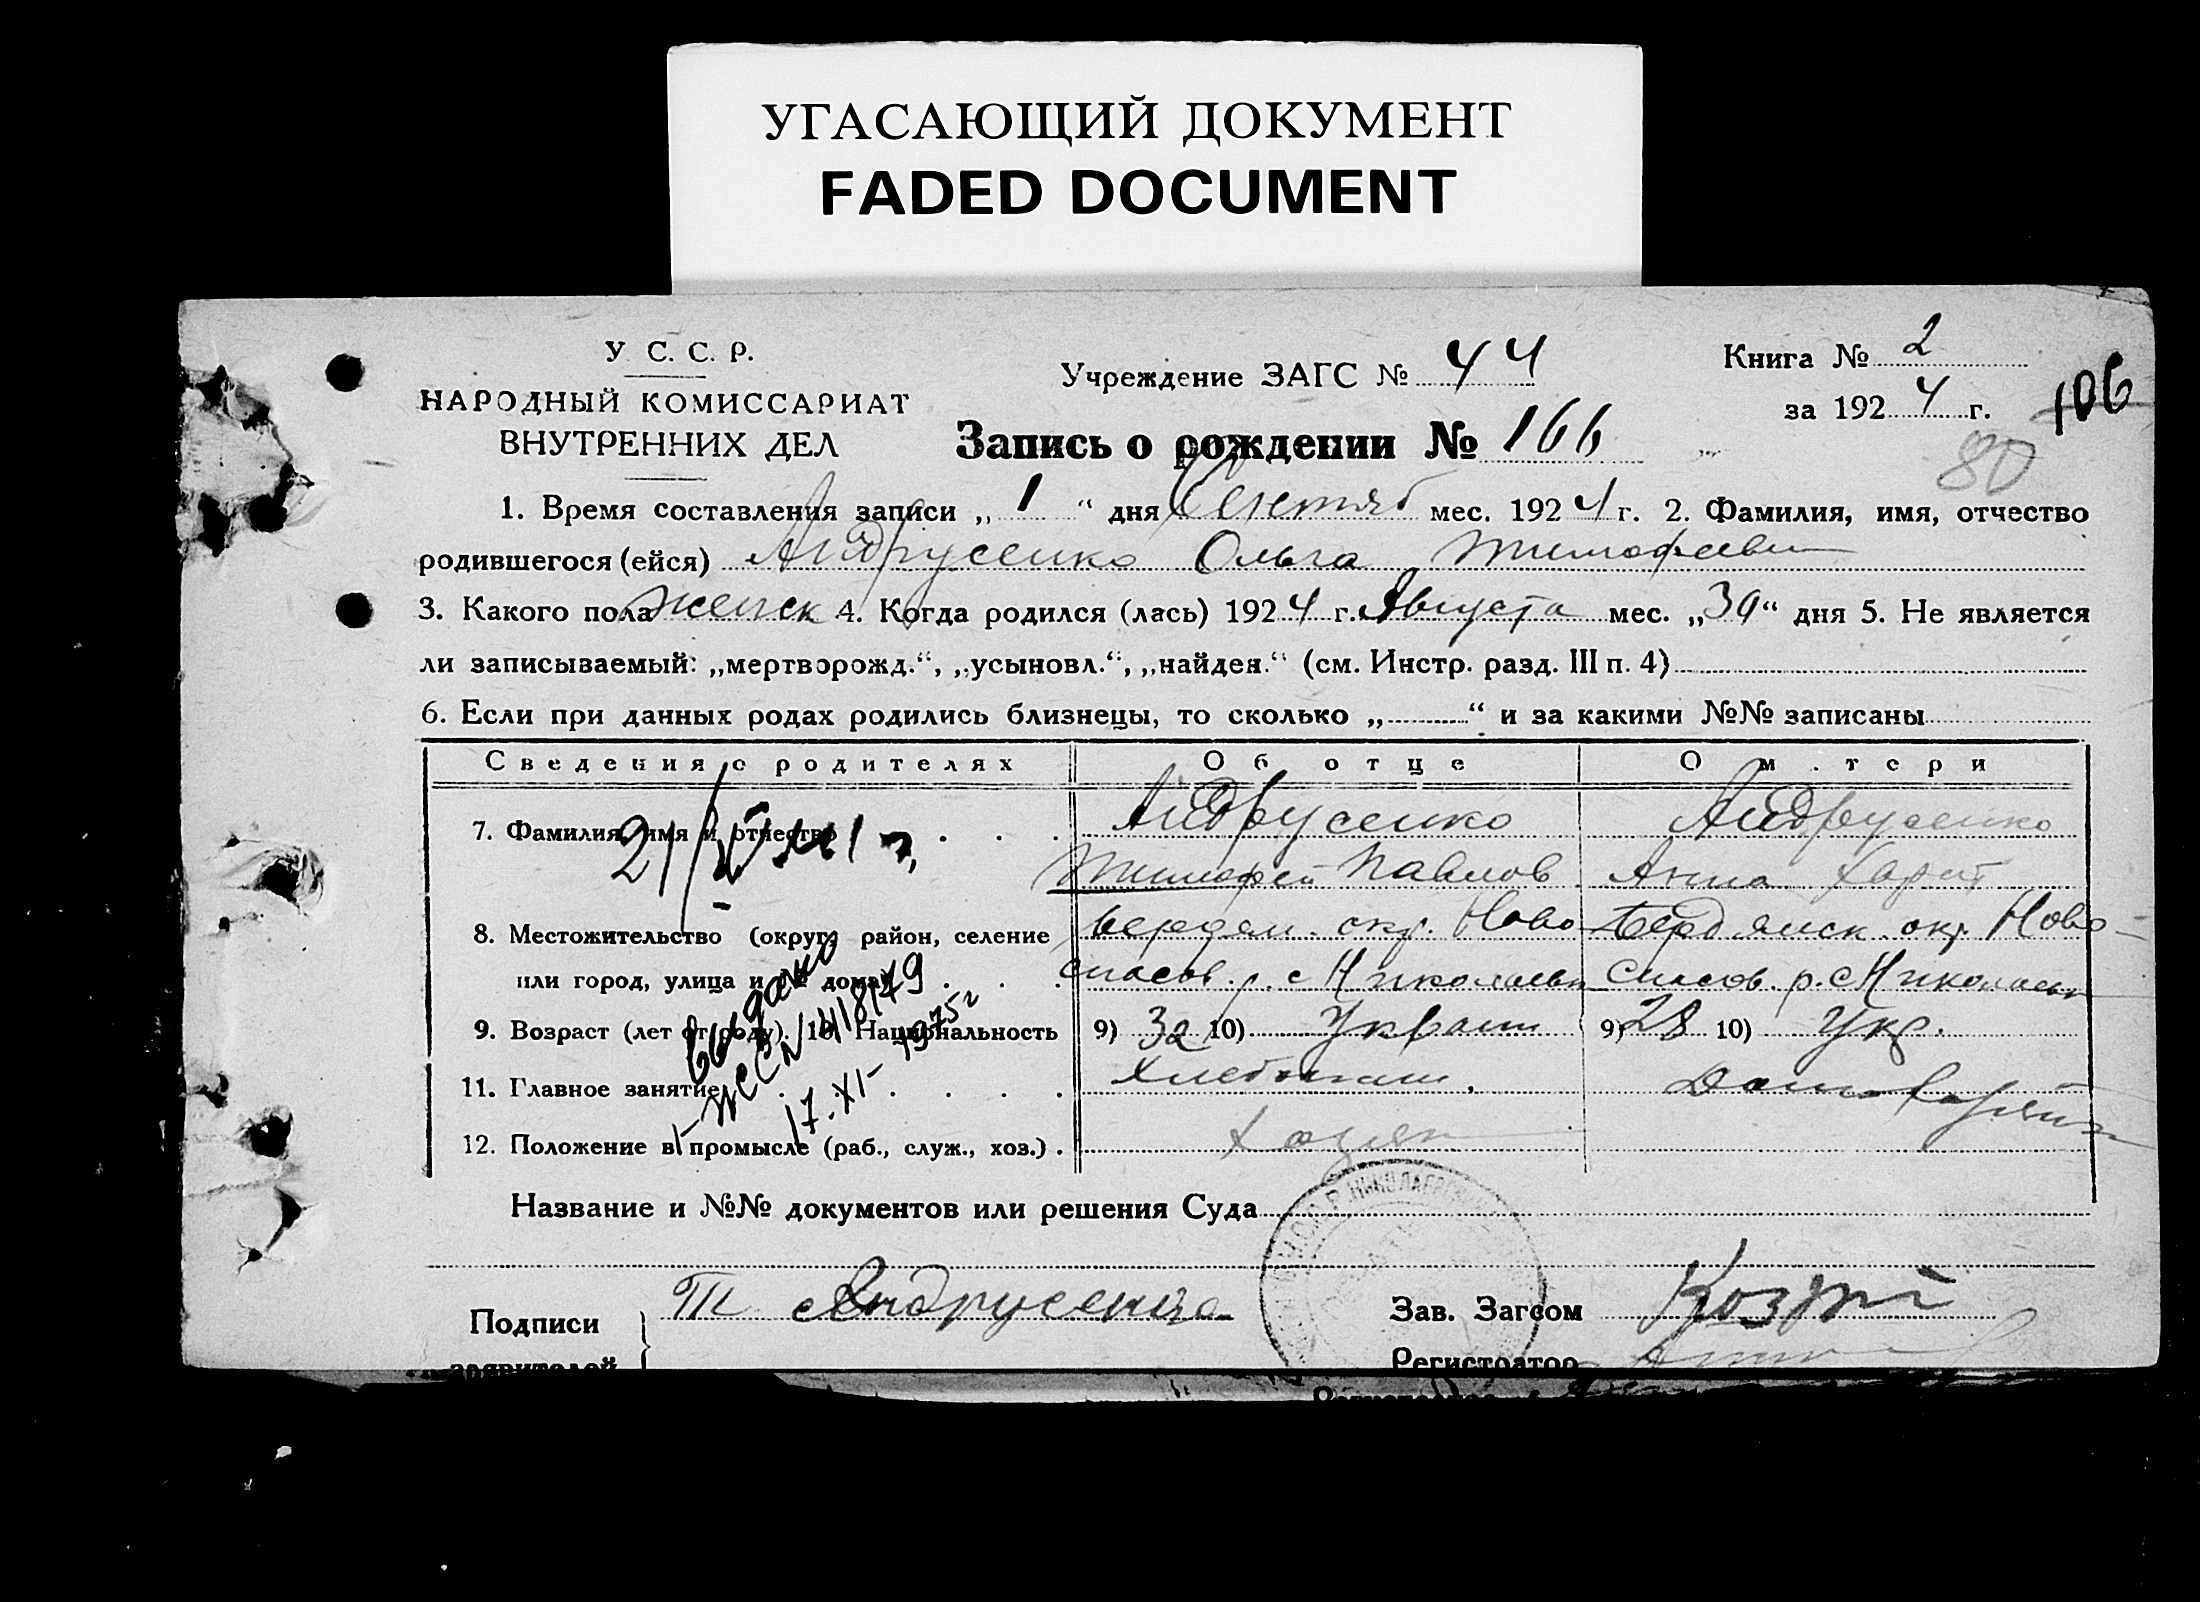 УГАСАЮЩИЙ ДОКУМЕНТ
FADED DOCUMENT
У. С. С. Р.
НАРОДНЫЙ КОМИССАРИАТ
ВНУТРЕННИХ ДЕЛ
Учреждение ЗАГС № 44
Книга № 2
за 1924 г.
106
Запись о рождении № 166
80
1. Время составления записи „1“ дня Сентяб мес. 1924 г. 2. Фамилия, имя, отчество
родившегося (ейся) Андрусенко Ольга Тимофеевн
3. Какого пола женск 4. Когда родился (лась) 1924 г. Августа мес. „30“ дня 5. Не является
ли записываемый: „мертворожд.“, „усыновл.“, „найден.“ (см. Инстр. разд. III п. 4)
6. Если при данных родах родились близнецы, то сколько „ “ и за какими №№ записаны
Сведения о родителях Об отце О матери
7. Фамилия, имя и отчество Андрусенко Андрусенко
Тимофей Павлов Анна Харит
8. Местожительство (округ, район, селение Бердян. окр. Ново Бердянск окр. Ново-
или город, улица и № дома) спасов. р. с Николаевк Спасов. р. с Николаевк
9. Возраст (лет от роду). 10. Национальность 9) 32 10) Украин 9) 28 10) Укр.
11. Главное занятие Хлебопаш. Дом
12. Положение в промысле (раб., служ., хоз.) Хозяин
выдано
17.XI-1975г
Название и №№ документов или решения Суда
Подписи Т Андрусенко Зав. Загсом
заявителей Регистратор